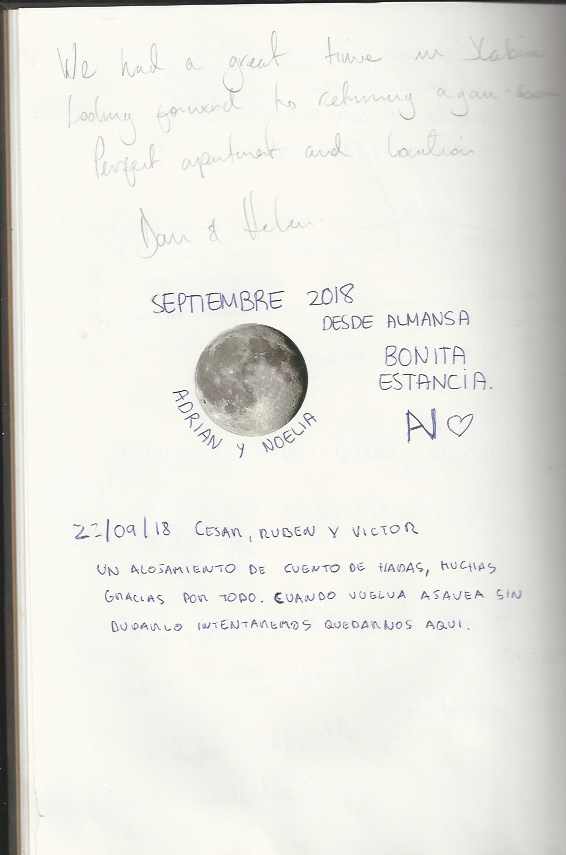 We had a great time in Xabia
Looking forward to returning again soon
Perfect apartment and location
Dan & Helen
SEPTIEMBRE 2018
DESDE ALMANSA
BONITA
ESTANCIA.
ADRIAN Y NOELIA
AN ♡
/09/18 CESAR, RUBEN Y VICTOR
UN ALOJAMIENTO DE CUENTO DE HADAS, MUCHAS
GRACIAS POR TODO. CUANDO VUELVA A JAVEA SIN
DUDARLO INTENTAREMOS QUEDARNOS AQUI.